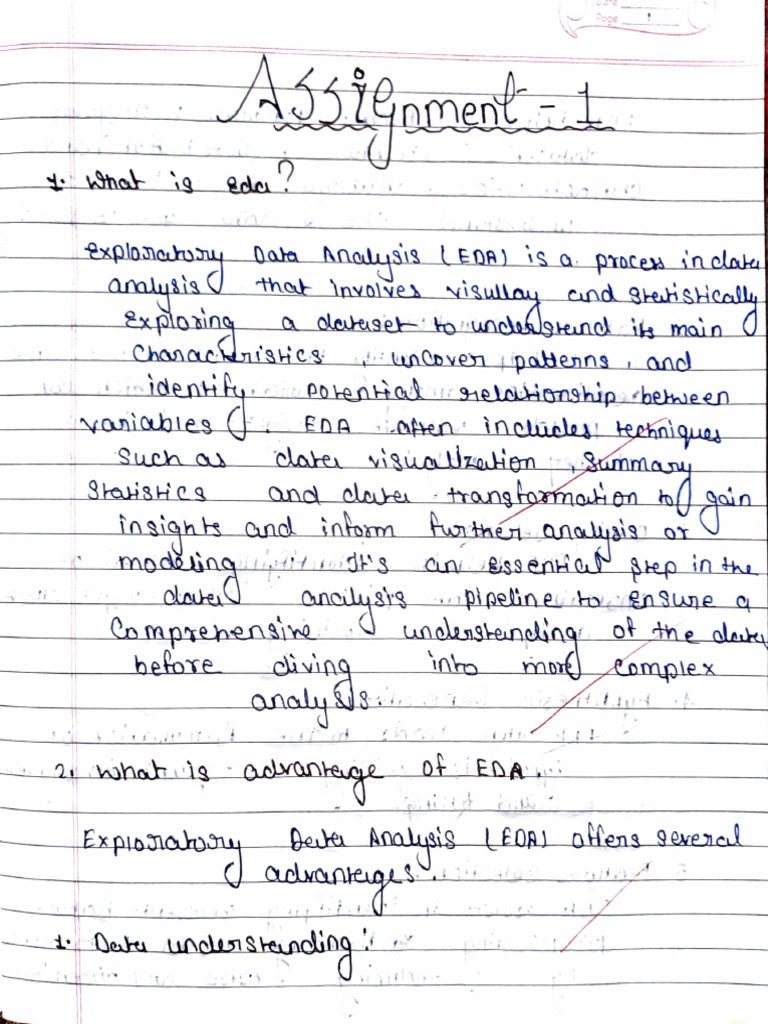 Date
Page 1
Assignment - 1
1. What is eda?
Exploratory Data Analysis (EDA) is a process in data
analysis that involves visullay and statistically
Exploring a dataset to understand its main
characteristics, uncover patterns, and
identify potential relationship between
variables. EDA often includes techniques
such as data visualization, summary
statistics and data transformation to gain
insights and inform further analysis or
modeling. It's an essential step in the
data analysis pipeline to ensure a
comprehensive understanding of the data
before diving into more complex
analysis.
2. What is advantage of EDA.
Exploratory Data Analysis (EDA) offers several
advantages.
1. Data understanding: